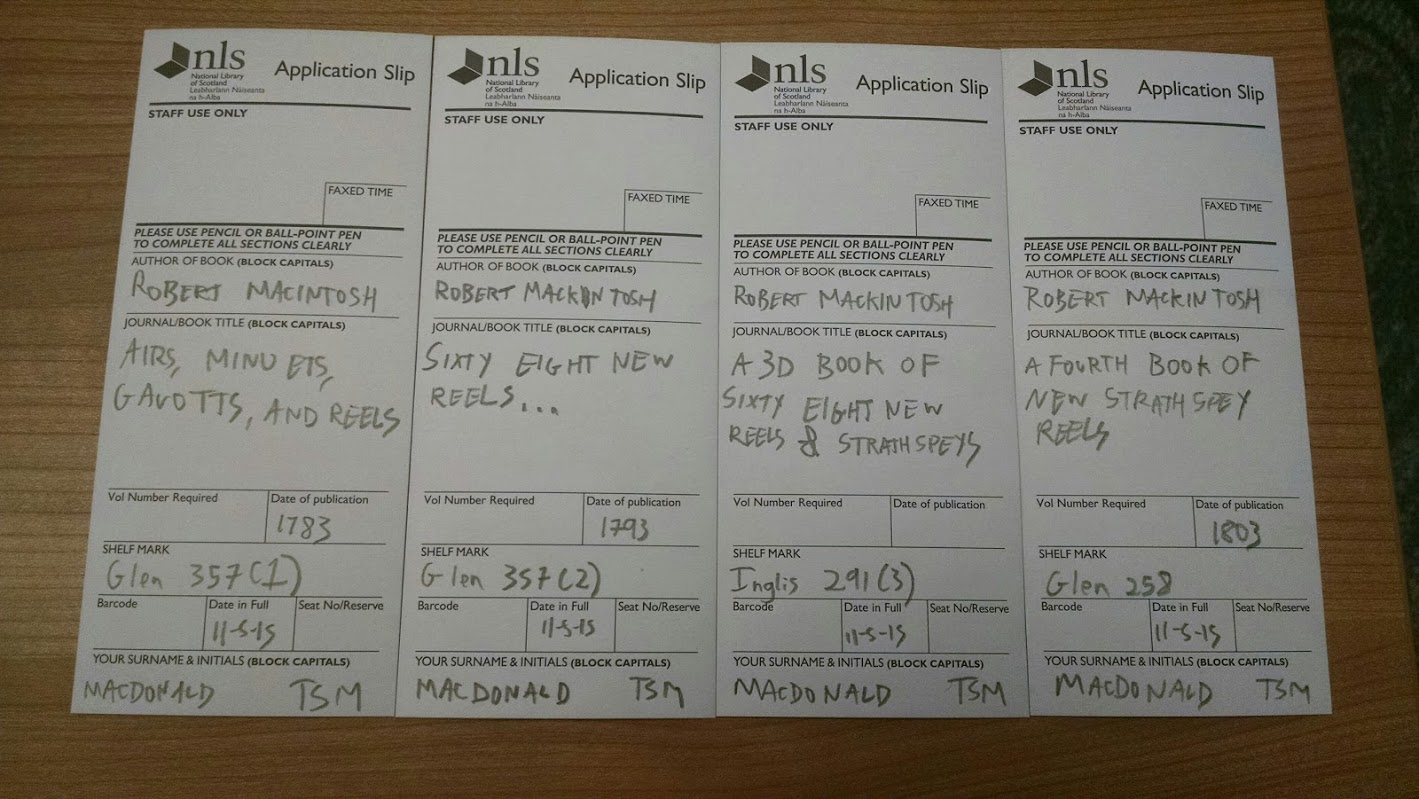 nls
National Library
of Scotland
Leabharlann Nàiseanta
na h-Alba
Application Slip
STAFF USE ONLY
FAXED TIME
PLEASE USE PENCIL OR BALL-POINT PEN
TO COMPLETE ALL SECTIONS CLEARLY
AUTHOR OF BOOK (BLOCK CAPITALS)
ROBERT MACINTOSH
JOURNAL/BOOK TITLE (BLOCK CAPITALS)
AIRS, MINUETS,
GAVOTTS, AND REELS
Vol Number Required
Date of publication
1783
SHELF MARK
Glen 357(1)
Barcode
Date in Full
Seat No/Reserve
11-5-15
YOUR SURNAME & INITIALS (BLOCK CAPITALS)
MACDONALD TSM
nls
National Library
of Scotland
Leabharlann Nàiseanta
na h-Alba
Application Slip
STAFF USE ONLY
FAXED TIME
PLEASE USE PENCIL OR BALL-POINT PEN
TO COMPLETE ALL SECTIONS CLEARLY
AUTHOR OF BOOK (BLOCK CAPITALS)
ROBERT MACKINTOSH
JOURNAL/BOOK TITLE (BLOCK CAPITALS)
SIXTY EIGHT NEW
REELS...
Vol Number Required
Date of publication
1793
SHELF MARK
Glen 357(2)
Barcode
Date in Full
Seat No/Reserve
11-5-15
YOUR SURNAME & INITIALS (BLOCK CAPITALS)
MACDONALD TSM
nls
National Library
of Scotland
Leabharlann Nàiseanta
na h-Alba
Application Slip
STAFF USE ONLY
FAXED TIME
PLEASE USE PENCIL OR BALL-POINT PEN
TO COMPLETE ALL SECTIONS CLEARLY
AUTHOR OF BOOK (BLOCK CAPITALS)
ROBERT MACKINTOSH
JOURNAL/BOOK TITLE (BLOCK CAPITALS)
A 3D BOOK OF
SIXTY EIGHT NEW
REELS & STRATHSPEYS
Vol Number Required
Date of publication
SHELF MARK
Inglis 291(3)
Barcode
Date in Full
Seat No/Reserve
11-5-15
YOUR SURNAME & INITIALS (BLOCK CAPITALS)
MACDONALD TSM
nls
National Library
of Scotland
Leabharlann Nàiseanta
na h-Alba
Application Slip
STAFF USE ONLY
FAXED TIME
PLEASE USE PENCIL OR BALL-POINT PEN
TO COMPLETE ALL SECTIONS CLEARLY
AUTHOR OF BOOK (BLOCK CAPITALS)
ROBERT MACKINTOSH
JOURNAL/BOOK TITLE (BLOCK CAPITALS)
A FOURTH BOOK OF
NEW STRATHSPEY
REELS
Vol Number Required
Date of publication
1803
SHELF MARK
Glen 258
Barcode
Date in Full
Seat No/Reserve
11-5-15
YOUR SURNAME & INITIALS (BLOCK CAPITALS)
MACDONALD TSM